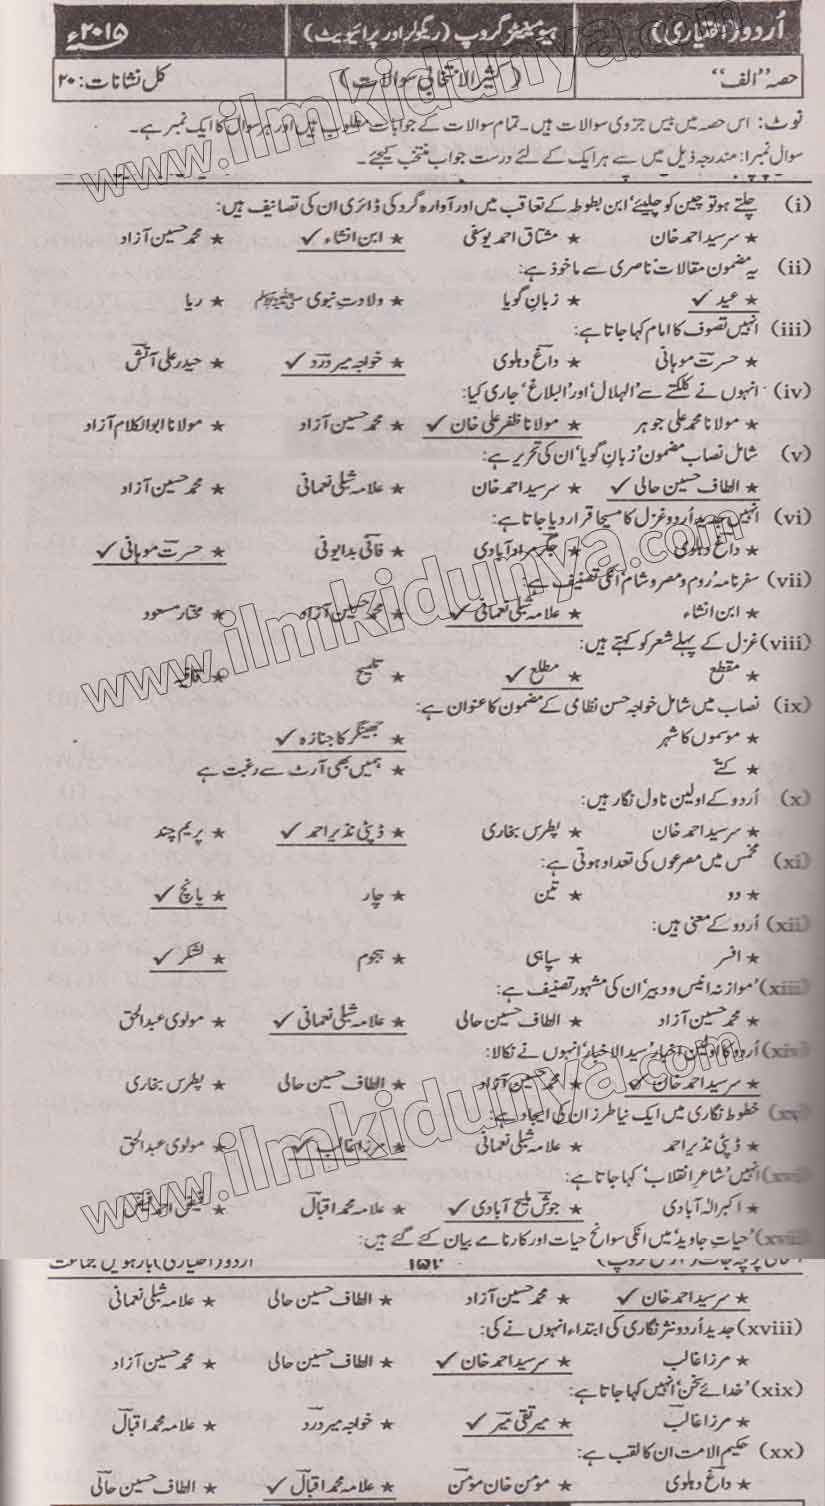 اُردو (اختیاری) ہیومینٹیز گروپ (ریگولر اور پرائیویٹ) ۲۰۱۵ء
حصہ "الف" (کثیر الانتخابی سوالات) کل نشانات: ۲۰
نوٹ: اس حصہ میں بیس جزوی سوالات ہیں۔ تمام سوالات کے جوابات مطلوب ہیں اور ہر سوال کا ایک نمبر ہے۔
سوال نمبر ۱: مندرجہ ذیل میں سے ہر ایک کے لئے درست جواب منتخب کیجئے۔
(i) چلتے ہو تو چین کو چلیئے' ابن بطوطہ کے تعاقب میں اور آوارہ گرد کی ڈائری ان کی تصانیف ہیں:
★ سر سید احمد خان ★ مشتاق احمد یوسفی ★ ابن انشاء ✓ ★ محمد حسین آزاد
(ii) یہ مضمون مقالات ناصری سے ماخوذ ہے:
★ عید ✓ ★ زبان گویا ★ ولادت نبوی ﷺ ★ ریا
(iii) انہیں تصوف کا امام کہا جاتا ہے:
★ حسرت موہانی ★ داغ دہلوی ★ خواجہ میر درد ✓ ★ حیدر علی آتش
(iv) انہوں نے کلکتے سے 'الہلال' اور 'البلاغ' جاری کیا:
★ مولانا محمد علی جوہر ★ مولانا ظفر علی خان ✓ ★ محمد حسین آزاد ★ مولانا ابوالکلام آزاد
(v) شامل نصاب مضمون 'زبان گویا' ان کی تحریر ہے:
★ الطاف حسین حالی ✓ ★ سر سید احمد خان ★ علامہ شبلی نعمانی ★ محمد حسین آزاد
(vi) انہیں جدید اُردو غزل کا مسیحا قرار دیا جاتا ہے:
★ داغ دہلوی ★ جگر مراد آبادی ★ فانی بدایونی ★ حسرت موہانی ✓
(vii) سفر نامہ 'روم و مصر و شام' انکی تصنیف ہے:
★ ابن انشاء ★ علامہ شبلی نعمانی ✓ ★ محمد حسین آزاد ★ مختار مسعود
(viii) غزل کے پہلے شعر کو کہتے ہیں:
★ مقطع ★ مطلع ✓ ★ تلمیح ★ قافیہ
(ix) نصاب میں شامل خواجہ حسن نظامی کے مضمون کا عنوان ہے:
★ موسموں کا شہر ★ جھینگر کا جنازہ ✓
★ کتے ★ ہمیں بھی آرٹ سے رغبت ہے
(x) اُردو کے اولین ناول نگار ہیں:
★ سر سید احمد خان ★ پطرس بخاری ★ ڈپٹی نذیر احمد ✓ ★ پریم چند
(xi) مخمس میں مصرعوں کی تعداد ہوتی ہے:
★ دو ★ تین ★ چار ★ پانچ ✓
(xii) اُردو کے معنی ہیں:
★ افسر ★ سپاہی ★ ہجوم ★ لشکر ✓
(xiii) 'موازنہ انیس و دبیر' ان کی مشہور تصنیف ہے:
★ محمد حسین آزاد ★ الطاف حسین حالی ★ علامہ شبلی نعمانی ✓ ★ مولوی عبدالحق
(xiv) اُردو کا اولین اخبار 'سید الاخبار' انہوں نے نکالا:
★ سر سید احمد خان ✓ ★ محمد حسین آزاد ★ الطاف حسین حالی ★ پطرس بخاری
(xv) خطوط نگاری میں ایک نیا طرز ان کی ایجاد ہے:
★ ڈپٹی نذیر احمد ★ علامہ شبلی نعمانی ★ مرزا غالب ✓ ★ مولوی عبدالحق
(xvi) انہیں 'شاعر انقلاب' کہا جاتا ہے:
★ اکبر الٰہ آبادی ★ جوش ملیح آبادی ✓ ★ علامہ محمد اقبال ★ فیض احمد فیض
(xvii) 'حیات جاوید' میں انکی سوانح حیات اور کارنامے بیان کئے گئے ہیں:
۱۵۲ اردو (اختیاری) بارہویں جماعت
★ سر سید احمد خان ✓ ★ محمد حسین آزاد ★ الطاف حسین حالی ★ علامہ شبلی نعمانی
(xviii) جدید اُردو نثر نگاری کی ابتداء انہوں نے کی:
★ مرزا غالب ★ سر سید احمد خان ✓ ★ الطاف حسین حالی ★ محمد حسین آزاد
(xix) 'خدائے سخن' انہیں کہا جاتا ہے:
★ مرزا غالب ★ میر تقی میر ✓ ★ خواجہ میر درد ★ علامہ محمد اقبال
(xx) حکیم الامت ان کا لقب ہے:
★ داغ دہلوی ★ مومن خان مومن ★ علامہ محمد اقبال ✓ ★ الطاف حسین حالی
www.ilmkidunya.com
www.ilmkidunya.com
www.ilmkidunya.com